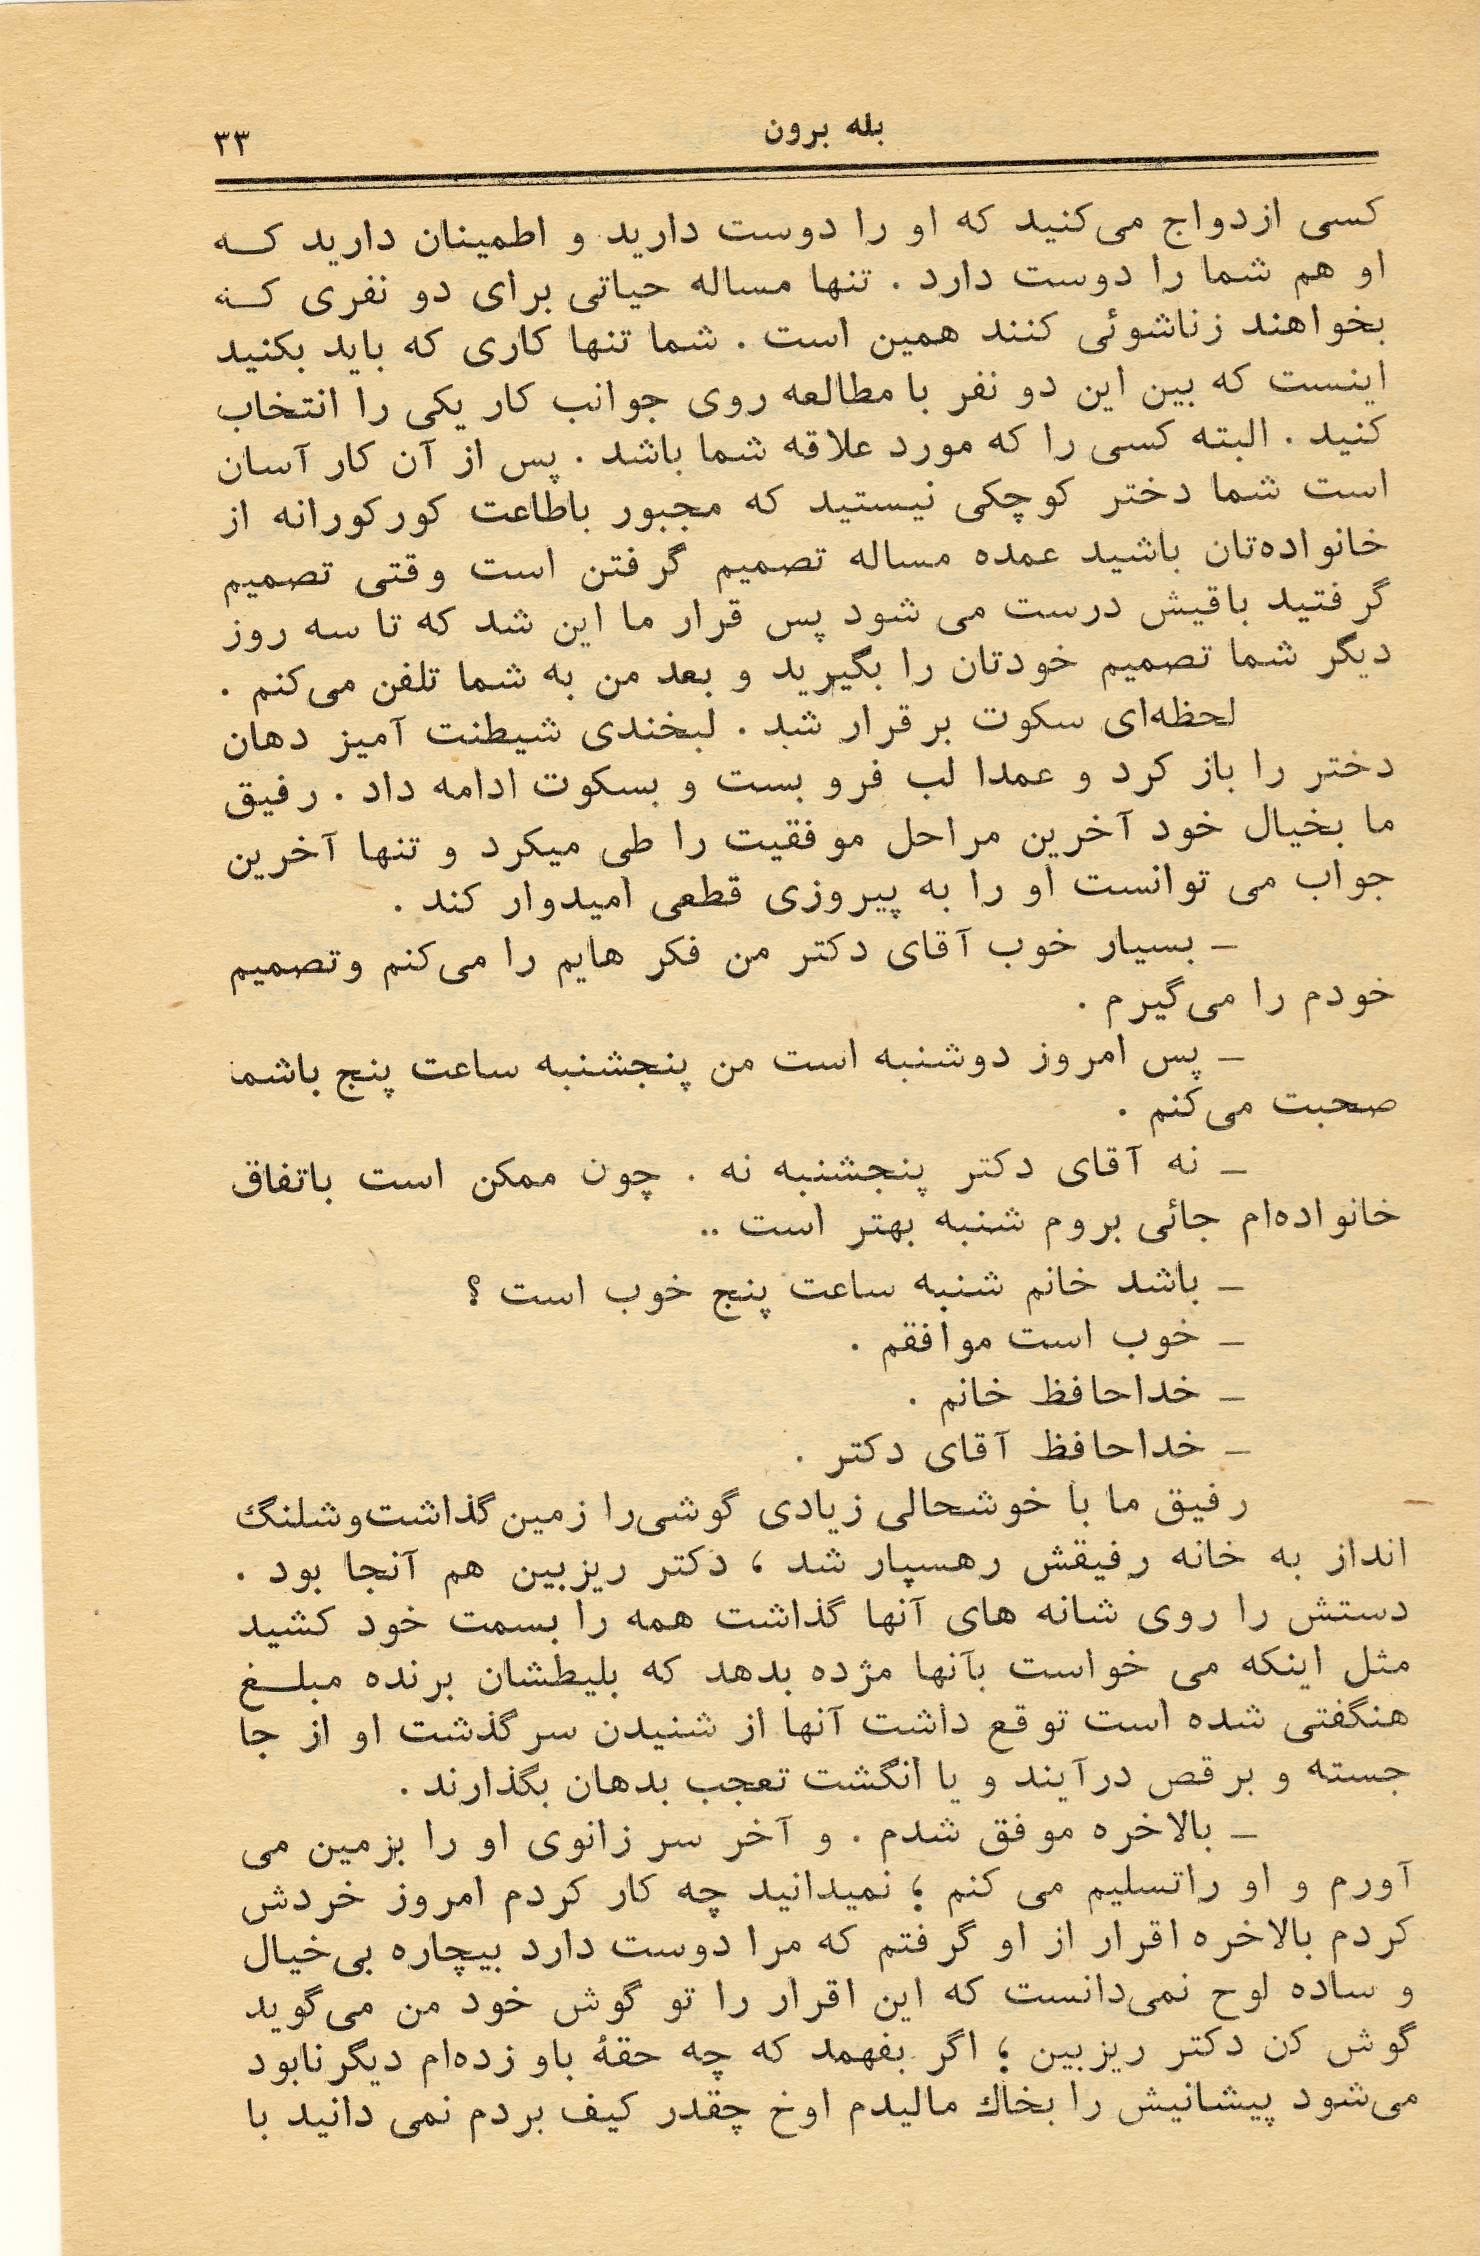 بله برون
۳۳
کسی ازدواج می‌کنید که او را دوست دارید و اطمینان دارید کـه
او هم شما را دوست دارد . تنها مساله حیاتی برای دو نفری کـه
بخواهند زناشوئی کنند همین است . شما تنها کاری که باید بکنید
اینست که بین این دو نفر با مطالعه روی جوانب کار یکی را انتخاب
کنید . البته کسی را که مورد علاقه شما باشد . پس از آن کار آسان
است شما دختر کوچکی نیستید که مجبور باطاعت کورکورانه از
خانواده‌تان باشید عمده مساله تصمیم گرفتن است وقتی تصمیم
گرفتید باقیش درست می شود پس قرار ما این شد که تا سه روز
دیگر شما تصمیم خودتان را بگیرید و بعد من به شما تلفن می‌کنم .
لحظه‌ای سکوت برقرار شد . لبخندی شیطنت آمیز دهان
دختر را باز کرد و عمدا لب فرو بست و بسکوت ادامه داد . رفیق
ما بخیال خود آخرین مراحل موفقیت را طی میکرد و تنها آخرین
جواب می توانست او را به پیروزی قطعی امیدوار کند .
– بسیار خوب آقای دکتر من فکر هایم را می‌کنم وتصمیم
خودم را می‌گیرم .
– پس امروز دوشنبه است من پنجشنبه ساعت پنج باشما
صحبت می‌کنم .
– نه آقای دکتر پنجشنبه نه . چون ممکن است باتفاق
خانواده‌ام جائی بروم شنبه بهتر است ..
– باشد خانم شنبه ساعت پنج خوب است ؟
– خوب است موافقم .
– خداحافظ خانم .
– خداحافظ آقای دکتر .
رفیق ما با خوشحالی زیادی گوشی‌را زمین گذاشت‌وشلنگ
انداز به خانه رفیقش رهسپار شد ، دکتر ریزبین هم آنجا بود .
دستش را روی شانه های آنها گذاشت همه را بسمت خود کشید
مثل اینکه می خواست بآنها مژده بدهد که بلیطشان برنده مبلـغ
هنگفتی شده است توقع داشت آنها از شنیدن سرگذشت او از جا
جسته و برقص درآیند و یا انگشت تعجب بدهان بگذارند .
– بالاخره موفق شدم . و آخر سر زانوی او را بزمین می
آورم و او راتسلیم می کنم ؛ نمیدانید چه کار کردم امروز خردش
کردم بالاخره اقرار از او گرفتم که مرا دوست دارد بیچاره بی‌خیال
و ساده لوح نمی‌دانست که این اقرار را تو گوش خود من می‌گوید
گوش کن دکتر ریزبین ؛ اگر بفهمد که چه حقهٔ باو زده‌ام دیگرنابود
می‌شود پیشانیش را بخاك مالیدم اوخ چقدر کیف بردم نمی دانید با